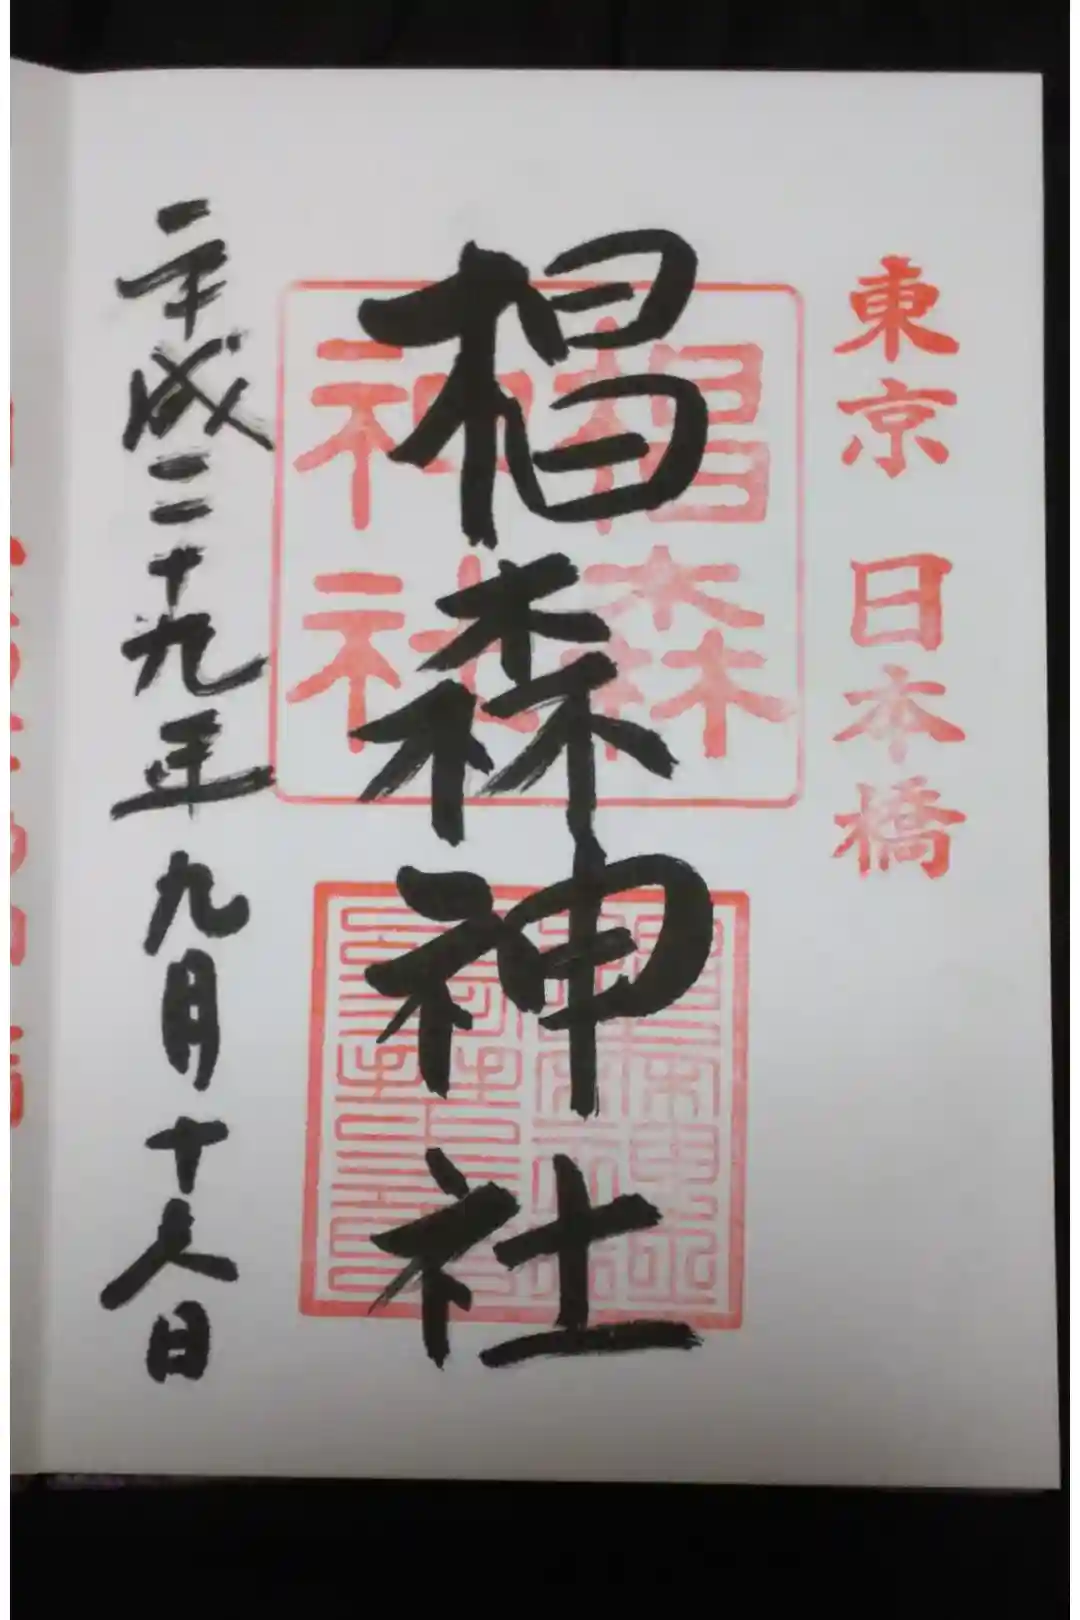 東京 日本橋
椙森神社
椙森
神社
平成二十九年九月十六日